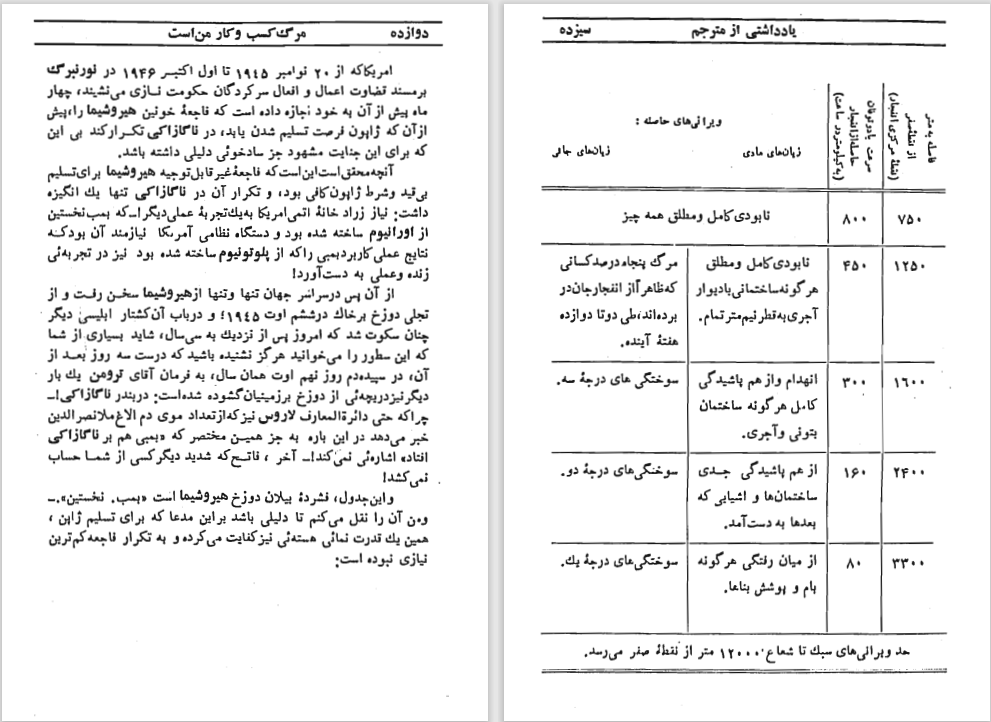 دوازده
مرگ کسب و کار من است
امریکا که از ۲۰ نوامبر ۱۹۴۵ تا اول اکتبر ۱۹۴۶ در نورنبرگ
برمسند قضاوت اعمال و افعال سرکردگان حکومت نازی می‌نشیند، چهار
ماه پیش از آن به خود اجازه داده است که فاجعهٔ خونین هیروشیما را، پیش
از آن که ژاپون فرصت تسلیم شدن یابد، در ناگازاکی تکرار کند بی این
که برای این جنایت مشهود جز سادخوئی دلیلی داشته باشد.
آنچه محقق است این است که فاجعهٔ غیرقابل توجیه هیروشیما برای تسلیم
بی‌قید وشرط ژاپون کافی بود، و تکرار آن در ناگازاکی تنها یك انگیزه
داشت: نیاز زراد خانهٔ اتمی امریکا به یك تجربهٔ عملی دیگر!ــ که بمب نخستین
از اورانیوم ساخته شده بود و دستگاه نظامی آمریکا نیازمند آن بود که
نتایج عملی کاربرد بمبی را که از پلوتونیوم ساخته شده بود نیز در تجربه‌ئی
زنده وعملی به دست آورد!
از آن پس در سراسر جهان تنها وتنها از هیروشیما سخن رفت و از
تجلی دوزخ برخاك در ششم اوت ۱۹۴۵؛ و درباب آن کشتار ابلیسی دیگر
چنان سکوت شد که امروز پس از نزدیك به سی سال، شاید بسیاری از شما
که این سطور را می‌خوانید هرگز نشنیده باشید که درست سه روز بعد از
آن، در سپیده‌دم روز نهم اوت همان سال، به فرمان آقای ترومن یك بار
دیگر نیز دریچه‌ئی از دوزخ برزمینیان گشوده شده است: دربندر ناگازاکی!ــ
چرا که حتی دائرة‌المعارف لاروس نیز که از تعداد موی دم الاغ ملانصرالدین
خبر می‌دهد در این باره به جز همین مختصر که «بمبی هم بر ناگازاکی
افتاد» اشاره‌ئی نمی‌کند!ــ آخر ، فاتح که شدید دیگر کسی از شما حساب
نمی‌کشد!
واین جدول، فشردهٔ بیلان دوزخ هیروشیما است «بمب. نخستین».ــ
ومن آن را نقل می‌کنم تا دلیلی باشد براین مدعا که برای تسلیم ژاپن ،
همین یك قدرت نمائی هسته‌ئی نیز کفایت می‌کرده و به تکرار فاجعه کم‌ترین
نیازی نبوده است:
یادداشتی از مترجم
سیزده
فاصله به متر
از نقطهٔ صفر
(نقطهٔ مرکزی انفجار)
سرعت باد و توفان
حاصله از انفجار
(به کیلومتر در ساعت)
ویرانی‌های حاصله :
زیان‌های مادی
زیان‌های جانی
۷۵۰
۸۰۰
نابودی کامل ومطلق همه چیز
۱۲۵۰
۴۵۰
نابودی کامل ومطلق
هرگونه ساختمانی با دیوار
آجری به قطر نیم متر تمام.
مرگ پنجاه درصد کسانی
که ظاهراً از انفجار جان در
برده‌اند، طی دو تا دوازده
هفتهٔ آینده.
۱۶۰۰
۳۰۰
انهدام و از هم پاشیدگی
کامل هرگونه ساختمان
بتونی و آجری.
سوختگی های درجهٔ سه.
۲۴۰۰
۱۶۰
از هم پاشیدگی جدی
ساختمان‌ها و اشیایی که
بعدها به دست آمد.
سوختگی‌های درجهٔ دو.
۳۳۰۰
۸۰
از میان رفتگی هرگونه
بام و پوشش بناها.
سوختگی‌های درجهٔ یك.
حد ویرانی‌های سبك تا شعاع ۱۲۰۰۰ متر از نقطهٔ صفر می‌رسد.